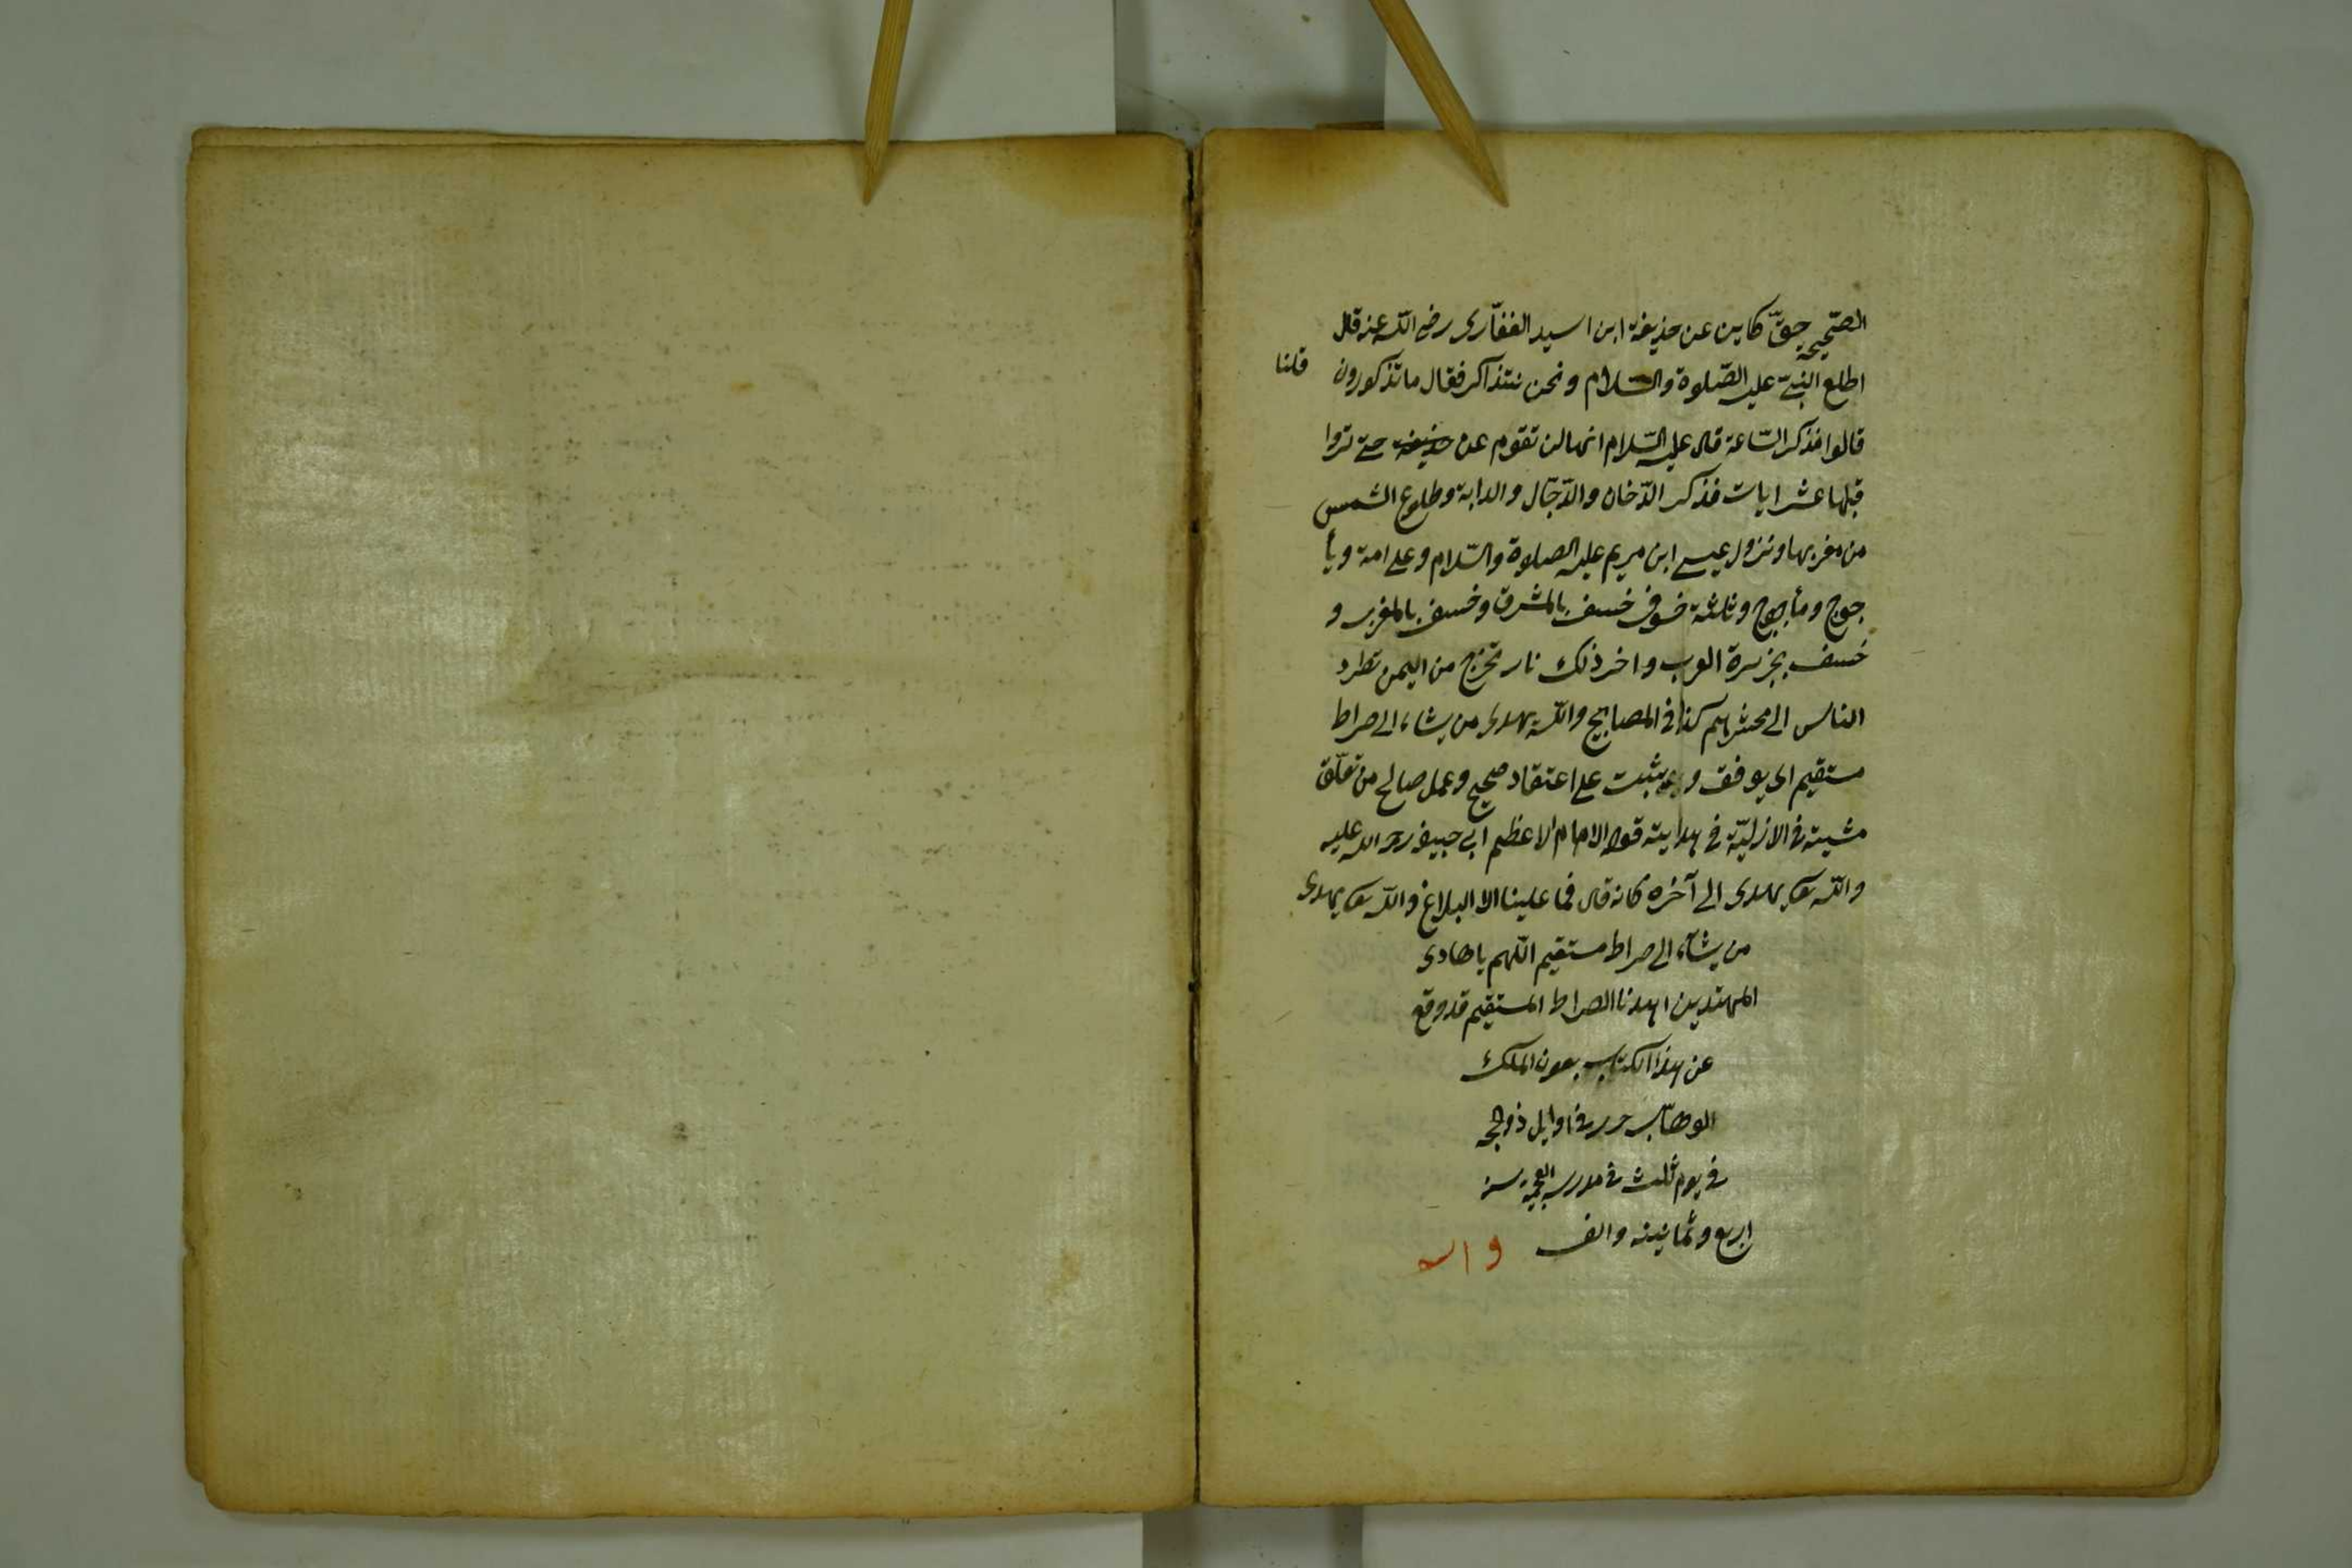 الصّحيحة حقّ كاين عن حذيفة ابن اسيد الغفّارى رضى الله عنه قال
اطلع النبىّ عليه الصّلوة والسّلام ونحن نتذاكر فقال ما تذكورون
قلنا
قالوا فذكر السّاعة قال عليه السّلام انها لن تقوم عن حذيفة حتى تروا
قبلها عشر ايات فذكر الدّخان والدّجّال والدابة وطلوع الشمس
من مغربها ونزول عيسى ابن مريم عليه الصلاة والسّلام وعلى امة ويأ
جوج ومأجوج وثلثة خسوف خسف بالمشرق وخسف بالمغرب و
خسف بجزيرة العرب واخر ذلك نار تخرج من اليمن تطرد
الناس الى محشرهم كذا فى المصابيح والله يهدى من يشاء الى صراط
مستقيم اى يوفق و يثبت على اعتقاد صحيح وعمل صالح من تعلّق
مشيته فى الازليّة فى هدايته قوله الامام الاعظم ابى حنيفه رحمه الله عليه
والله تعالى يهدى الى آخره كانه قال فما علينا الا البلاغ والله تعالى يهدى
من يشآء الى صراط مستقيم اللّهم يا هادى
المهتدين اهدنا الصراط المستقيم قد وقع
عن هذا الكتاب بعون الملك
الوهّاب حرر فى اوايل ذو الحجه
فى يوم ثلث فى مدرسه سنه
اربع وثمانينه والف